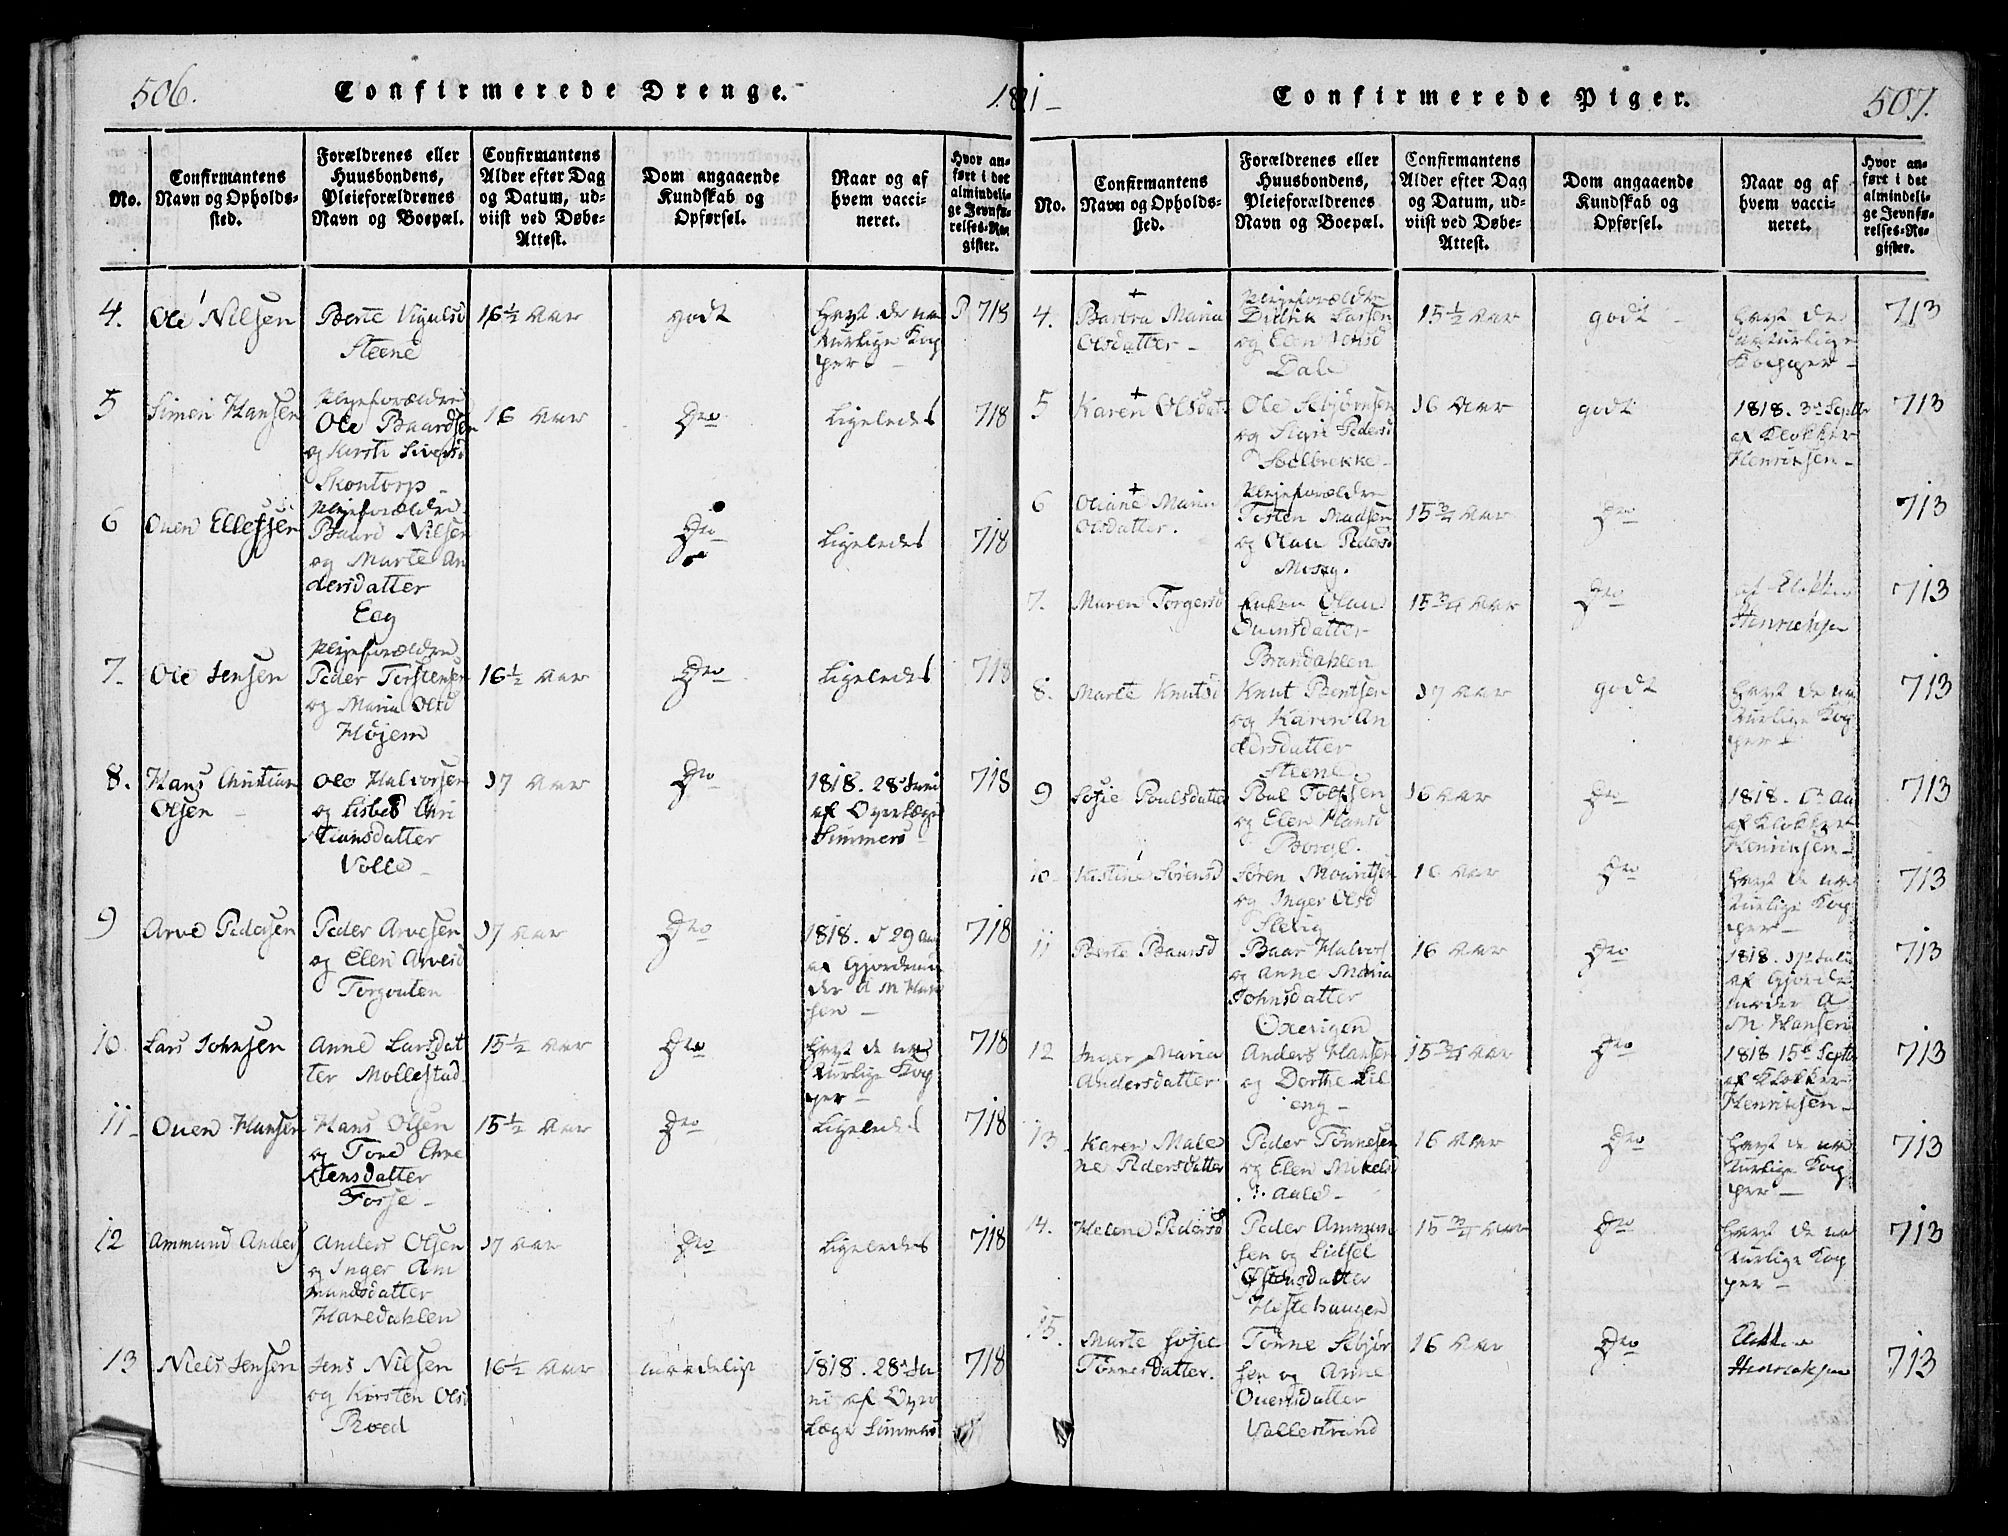 506.
Confirmerede Drenge.
1821-
No.
Confirmantens
Navn og Opholds-
sted.
Forældrenes eller
Huusbondens,
Pleieforældrenes
Navn og Boepæl.
Confirmantens
Alder efter Dag
og Datum, ud-
viist ved Døbe-
Attest.
Dom angaaende
Kundskab og
Opførsel.
Naar og af
hvem vacci-
neret.
Hvor an-
ført i det
almindeli-
ge Jevnfø-
relses-Re-
gister.
4.
Ole Nilsen
Berte Vigulsd
Steene
16½ Aar
godt
havt de na
turlige Kop
per
718
5
Simen Hansen
Plejeforældre
Ole Baardsen
og Kirsti Siversd
Skontorp
16 Aar
Do
Ligeledes
718
6
Ouen Ellefsen
Plejeforældre
Baard Nilsen
og Marte An
dersdatter
Eeg
Do
Ligeledes
718
7.
Ole Jensen
Plejeforældre
Peder Torstensen
og Maria Olsd
Højem
16½ Aar
Do
Ligeledes
718
8.
Hans Christian
Olsen
Ole Halvorsen
og Lisbed Chri
stiansdatter
Volle
17 Aar
Do
1818. 28 Juni
af Overlæge
Simmers
718
9
Arve Pedersen
Peder Arvesen
og Elen Arvesd
Torgouten
17 Aar
Do
1818. d 29 Au
af Gjordemo
der A M Han
sen
718
10.
Lars Johnsen
Anne Larsdat
ter Mollestad
15½ Aar
Do
havt de na
turlige Kop
per
718
11
Ouen Hansen
Hans Olsen
og Tone Chre
stensdatter
Forse
15½ Aar
Do
Ligeledes
718
12
Ammund Anders
Anders Olsen
og Inger Am
mundsdatter
Haredahlen
17 Aar
Do
Ligeledes
718
13
Niels Jensen
Jens Nilsen
og Kirsten Olsd
Roed
16½ Aar
maadeligt
1818. 28 Ju
ni af Over
Læge Simmers
718
Confirmerede Piger.
507.
No.
Confirmantens
Navn og Opholds-
sted.
Forældrenes eller
Huusbondens,
Pleieforældrenes
Navn og Boepæl.
Confirmantens
Alder efter Dag
og Datum, ud-
viist ved Døbe-
Attest.
Dom angaaende
Kundskab og
Opførsel.
Naar og af
hvem vacci-
neret.
Hvor an-
ført i det
almindeli-
ge Jevnfø-
relses-Re-
gister.
4.
Barbra Maria
Olsdatter
Plejeforældre
Didrik Larsen
og Elen
Dale
15½ Aar
godt
havt de
naturlige
Kopper
713
5
Karen Olsdat
Ole Aslbjørnsen
og Siri Pedersd
Soelbrekke
16 Aar
godt
1818. 3 Septbr
af Klokker
Henriksen
713
6
Oliane Maria
Olsdatter.
Plejeforældre
Tosten Madsen
og Olau Pedersd
15¾ Aar
Do
713
7.
Maren Torgersd
Enken Olau
Ouensdatter
Brandahlen
15¾ Aar
Do
af Klokker
Henriksen
713
8.
Marte Knutsd
Knut Bentsen
og Karen An
dersdatter
Steene
17 Aar
godt
havt de na
turlige Kop
per
713
9
Sofie Poulsdatter
Poul Tollfsen
og Elen Hansd
Borge
16 Aar
Do
af Klokker
Henriksen
713
10
Kistine Sørensd
Søren Mouritsen
og Inger Olsd
Slevig
16 Aar
Do
havt de na
turlige Kop
per
713
11
Berte Baarsd
Baar Halvors
og Anne Maria
Johnsdatter
Oxevigen
16 Aar
Do
1818. 17 Juli
af Gjorde
moder A
M Hansen
713
12
Inger Maria
Andersdatter
Anders Hansen
og Dorthe Lil
eng
15¾ Aar
Do
1818 15 Septbr
af Klokker
Henriksen
713
13
Karen Male
ne Pedersdatter
Peder Tønnesen
og Elen Mikelsd
Auld
16 Aar
Do
havt de na
turlige Kop
per
713
14.
Helene Pedersd
Peder Ammun
sen og Sidsel
Østensdatter
Hestehaugen
15¾ Aar
Do
havt de na
turlige Kop
per
713
15.
Marte Sofie
Tønnesdatter.
Tønne Asbjør
sen og Anne
Ouensdatter
Vallestrand
16 Aar
Do
Klokker
Henriksen
713